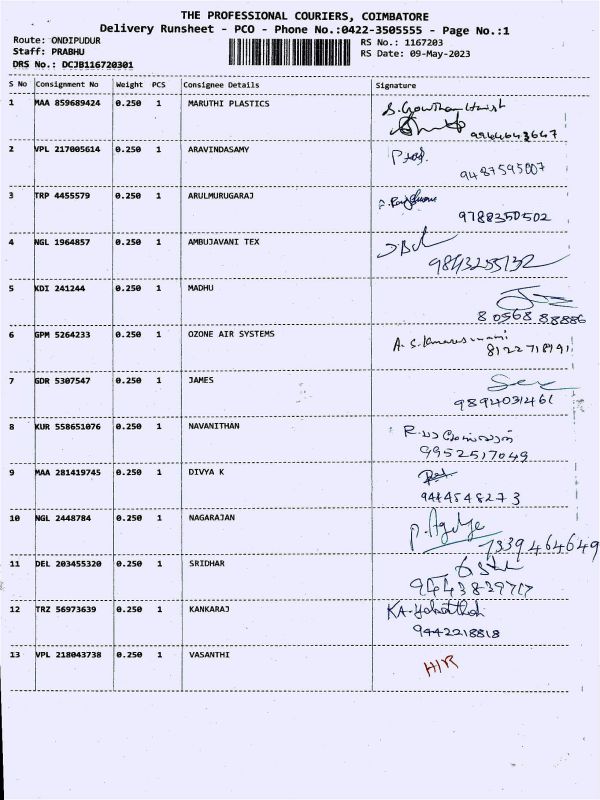 THE PROFESSIONAL COURIERS, COIMBATORE
Delivery Runsheet - PCO - Phone No.:0422-3505555 - Page No.:1
Route: ONDIPUDUR RS No.: 1167203
Staff: PRABHU RS Date: 09-May-2023
DRS No.: DCJB116720301
S No Consignment No Weight PCS Consignee Details Signature
1 MAA 859689424 0.250 1 MARUTHI PLASTICS
9964643647
2 VPL 217005614 0.250 1 ARAVINDASAMY
9487595007
3 TRP 4455579 0.250 1 ARULMURUGARAJ
9788350502
4 NGL 1964857 0.250 1 AMBUJAVANI TEX
9843255132
5 KDI 241244 0.250 1 MADHU
80568 88886
6 GPM 5264233 0.250 1 OZONE AIR SYSTEMS A. S. Kumareswami
8122718141
7 GDR 5307547 0.250 1 JAMES
9894031461
8 KUR 558651076 0.250 1 NAVANITHAN
9952517049
9 MAA 281419745 0.250 1 DIVYA K
9444548273
10 NGL 2448784 0.250 1 NAGARAJAN
7339464649
11 DEL 203455320 0.250 1 SRIDHAR
9443839717
12 TRZ 56973639 0.250 1 KANKARAJ
9442218818
13 VPL 218043738 0.250 1 VASANTHI H/R